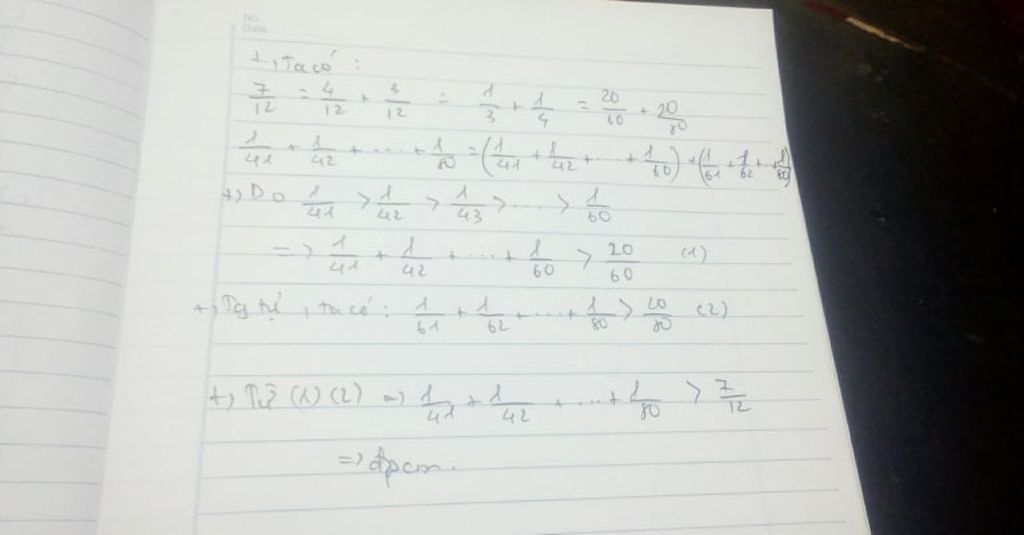 No.
Date
+, Ta có :
7/12 = 4/12 + 3/12 = 1/3 + 1/4 = 20/60 + 20/80
1/41 + 1/42 + ... + 1/80 = (1/41 + 1/42 + ... + 1/60) + (1/61 + 1/62 + ... + 1/80)
+, Do 1/41 > 1/42 > 1/43 > ... > 1/60
=> 1/41 + 1/42 + ... + 1/60 > 20/60 (1)
+, Tg tự, ta có : 1/61 + 1/62 + ... + 1/80 > 20/80 (2)
+, Từ (1) (2) => 1/41 + 1/42 + ... + 1/80 > 7/12
=> đpcm.